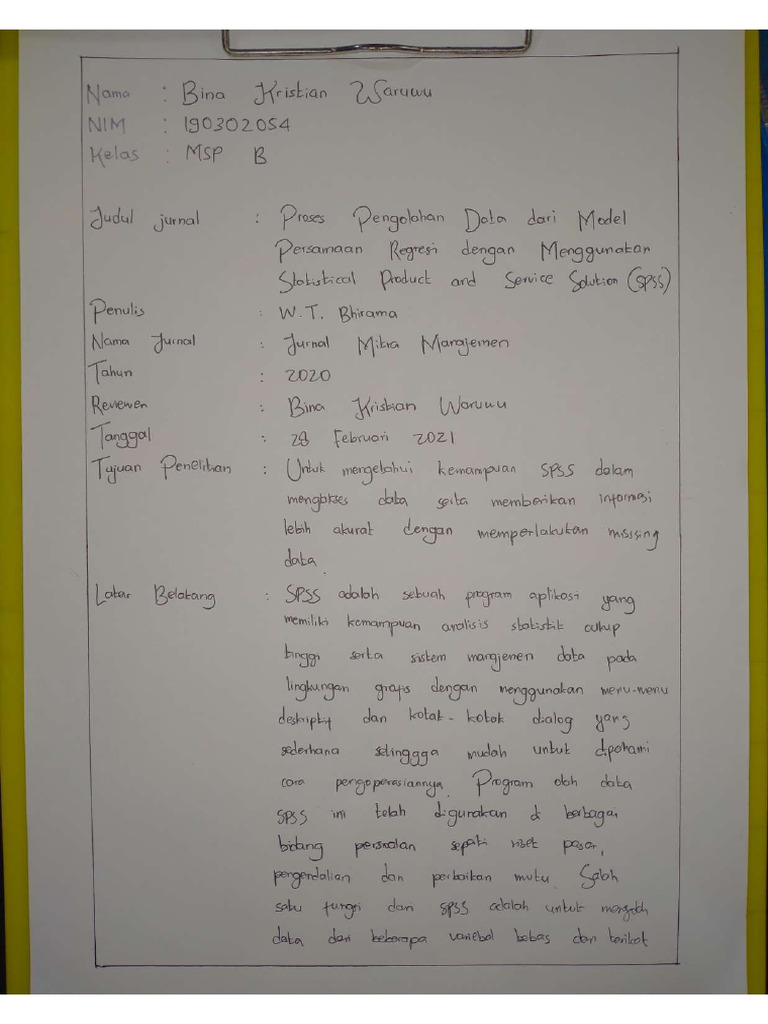 Nama : Bina Kristian Waruwu
NIM : 190302054
Kelas : MSP B
Judul jurnal : Proses Pengolahan Data dari Model
Persamaan Regresi dengan Menggunakan
Statistical Product and Service Solution (SPSS)
Penulis : W.T. Bhirama
Nama Jurnal : Jurnal Mitra Manajemen
Tahun : 2020
Reviewer : Bina Kristian Waruwu
Tanggal : 28 Februari 2021
Tujuan Penelitian : Untuk mengetahui kemampuan SPSS dalam
mengakses data serta memberikan informasi
lebih akurat dengan memperlakukan missing
data.
Latar Belakang : SPSS adalah sebuah program aplikasi yang
memiliki kemampuan analisis statistik cukup
tinggi serta sistem manajemen data pada
lingkungan grafis dengan menggunakan menu-menu
deskriptif dan kotak-kotak dialog yang
sederhana sehinggga mudah untuk dipahami
cara pengoperasiannya. Program olah data
SPSS ini telah digunakan di berbagai
bidang persoalan seperti riset pasar,
pengendalian dan perbaikan mutu. Salah
satu fungsi dari SPSS adalah untuk mengolah
data dari beberapa variebal bebas dan terikat